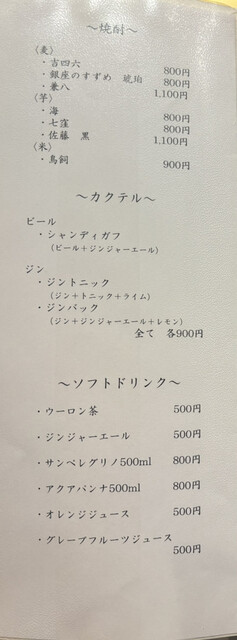 ～焼酎～
〈麦〉
・吉四六 800円
・銀座のすずめ 琥珀 800円
・兼八 1,100円
〈芋〉
・海 800円
・七窪 800円
・佐藤 黒 1,100円
〈米〉
・鳥飼 900円
～カクテル～
ビール
・シャンディガフ
(ビール+ジンジャーエール)
ジン
・ジントニック
(ジン+トニック+ライム)
・ジンバック
(ジン+ジンジャーエール+レモン)
全て 各900円
～ソフトドリンク～
・ウーロン茶 500円
・ジンジャーエール 500円
・サンペレグリノ500ml 800円
・アクアパンナ500ml 800円
・オレンジジュース 500円
・グレープフルーツジュース
500円